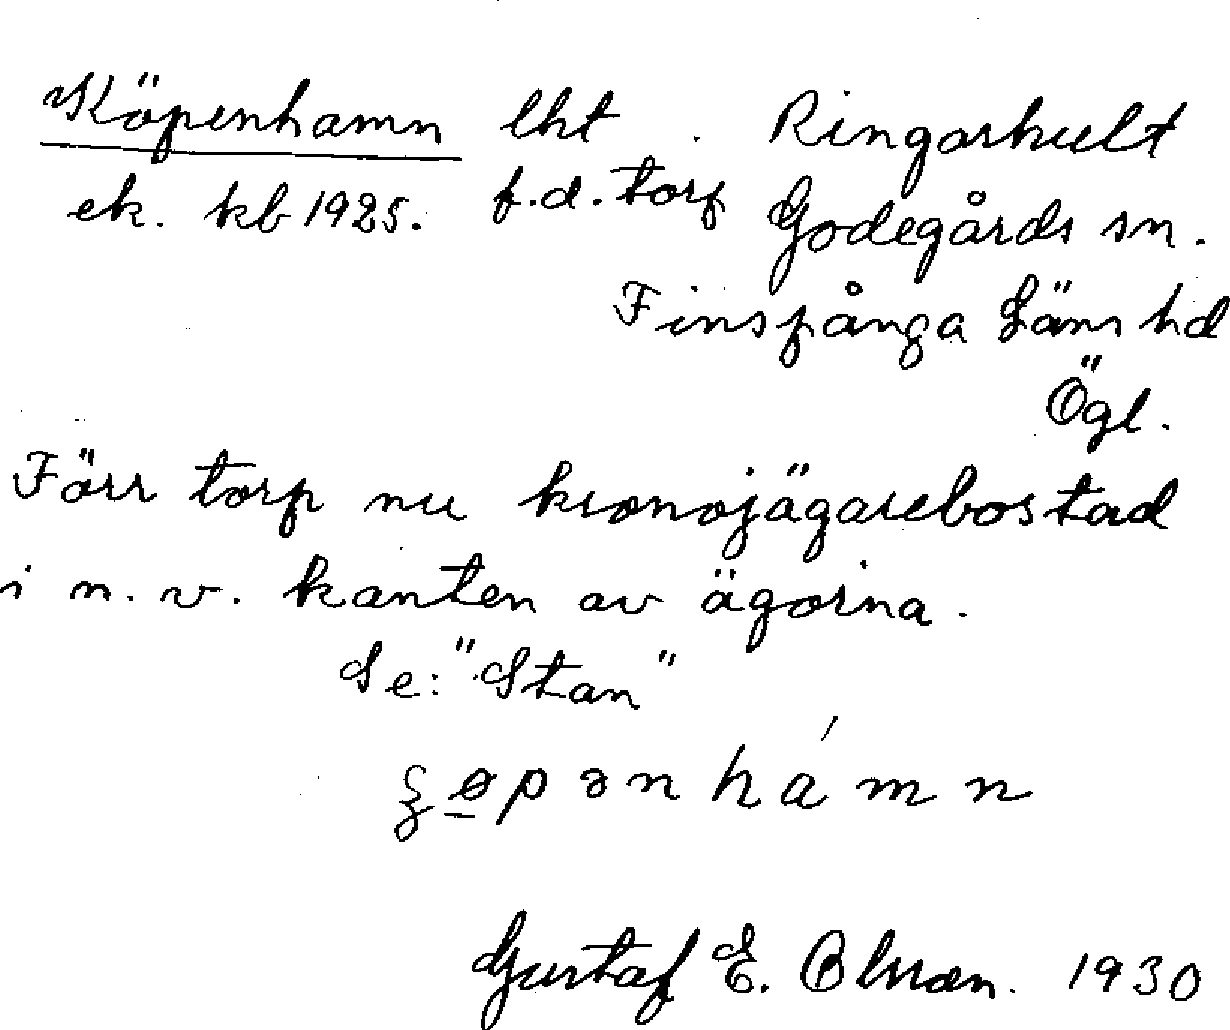 Köpenhamn lht. Ringarhult
ek. kb 1925. f.d. torp Godegårds sn.
Finspånga Läns hd
Ögl.
Förr torp nu kronojägarebostad
i n.v. kanten av ägorna.
Se: "Stan"
ɕøpənhámn
Gustaf E. Olsson. 1930